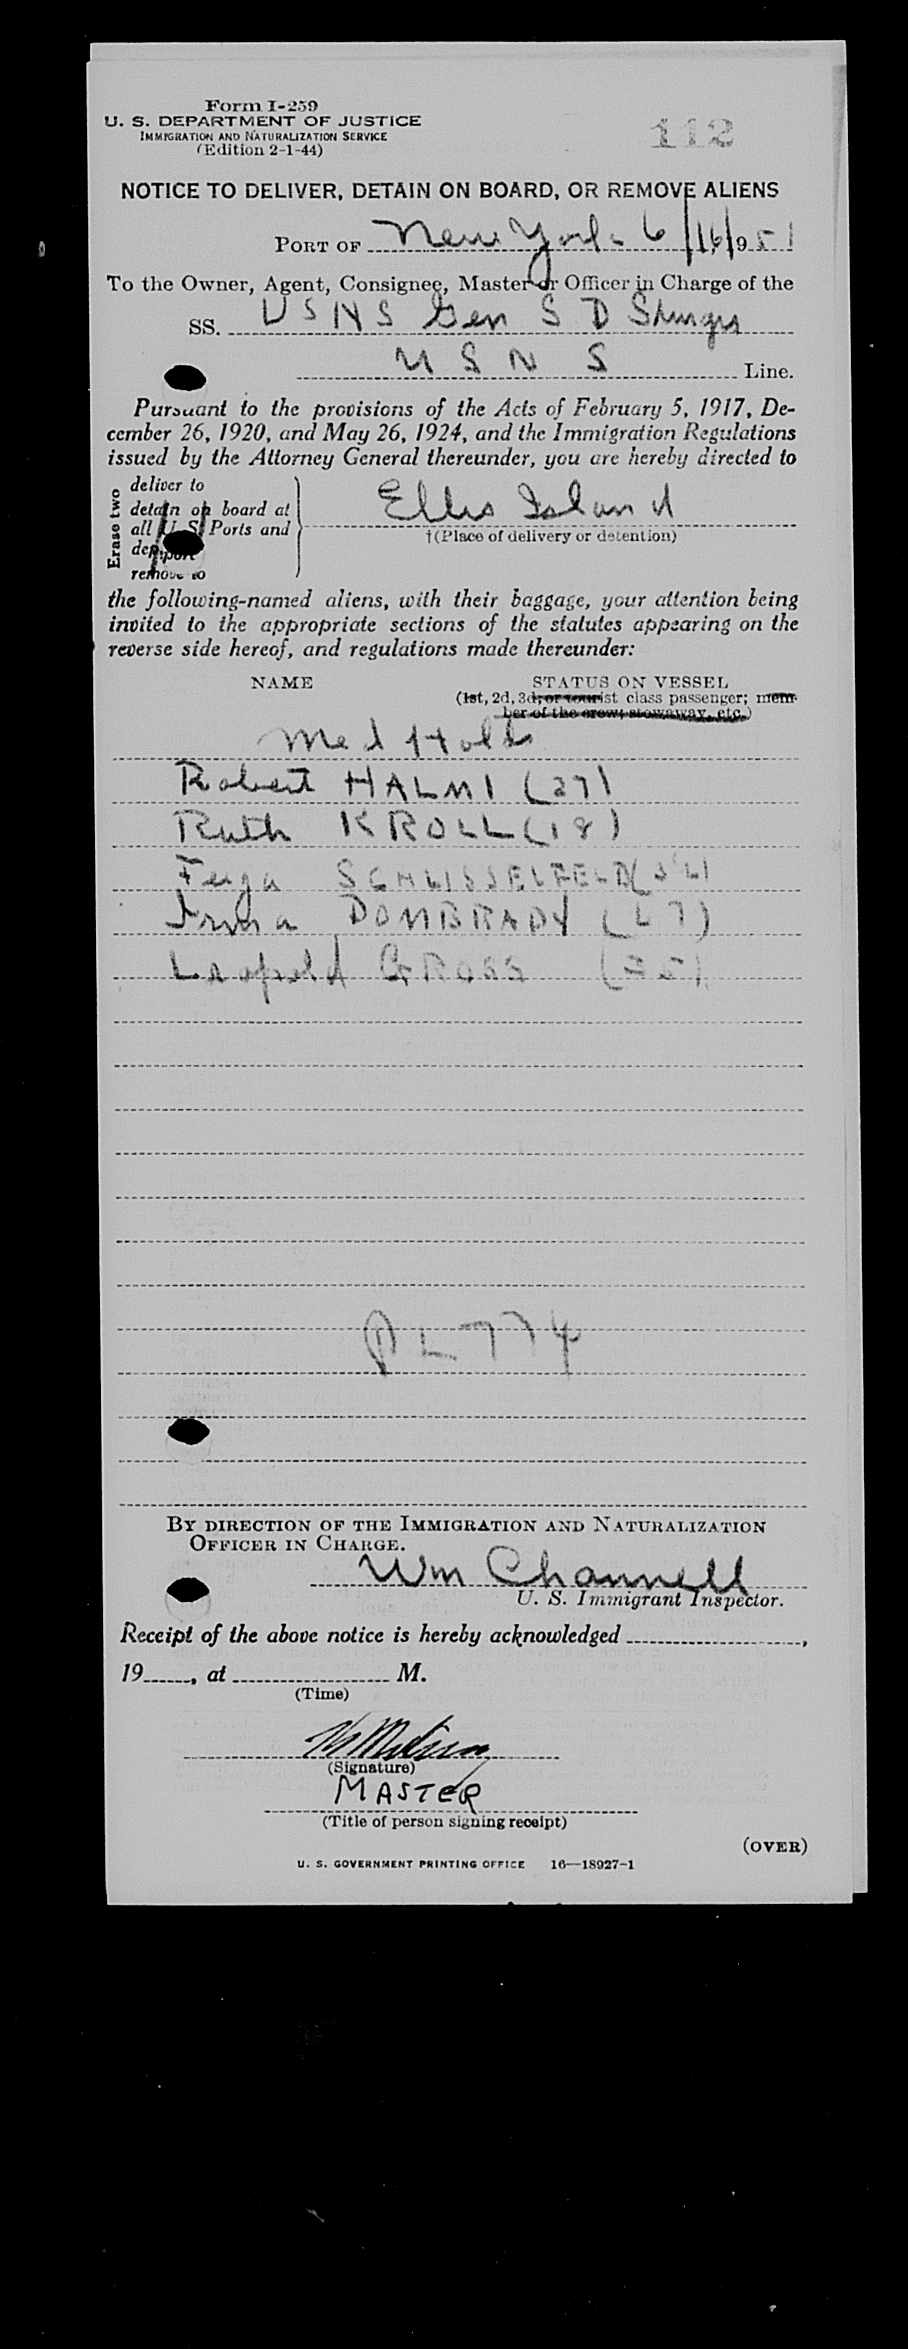 Form I-259
U. S. DEPARTMENT OF JUSTICE
IMMIGRATION AND NATURALIZATION SERVICE
(Edition 2-1-44)
112
NOTICE TO DELIVER, DETAIN ON BOARD, OR REMOVE ALIENS
PORT OF New York 6/16/1951
To the Owner, Agent, Consignee, Master or Officer in Charge of the
SS. USNS Gen S D Sturgis
U S N S Line.
Pursuant to the provisions of the Acts of February 5, 1917, De-
cember 26, 1920, and May 26, 1924, and the Immigration Regulations
issued by the Attorney General thereunder, you are hereby directed to
Erase two
deliver to
detain on board at
all U. S. Ports and
deport
remove to
Ellis Island
†(Place of delivery or detention)
the following-named aliens, with their baggage, your attention being
invited to the appropriate sections of the statutes appearing on the
reverse side hereof, and regulations made thereunder:
NAME STATUS ON VESSEL
(1st, 2d, 3d, or tourist class passenger; mem-
ber of the crew; stowaway, etc.)
Med Holds
Robert HALMI (27)
Ruth KROLL (18)
Feiga SCHLISSELFELD
Irma DOMBRADY
Leopold GROSS
PL 774
BY DIRECTION OF THE IMMIGRATION AND NATURALIZATION
OFFICER IN CHARGE.
Wm Channell
U. S. Immigrant Inspector.
Receipt of the above notice is hereby acknowledged ,
19 , at M.
(Time)
(Signature)
MASTER
(Title of person signing receipt)
(OVER)
U. S. GOVERNMENT PRINTING OFFICE 16—18927-1